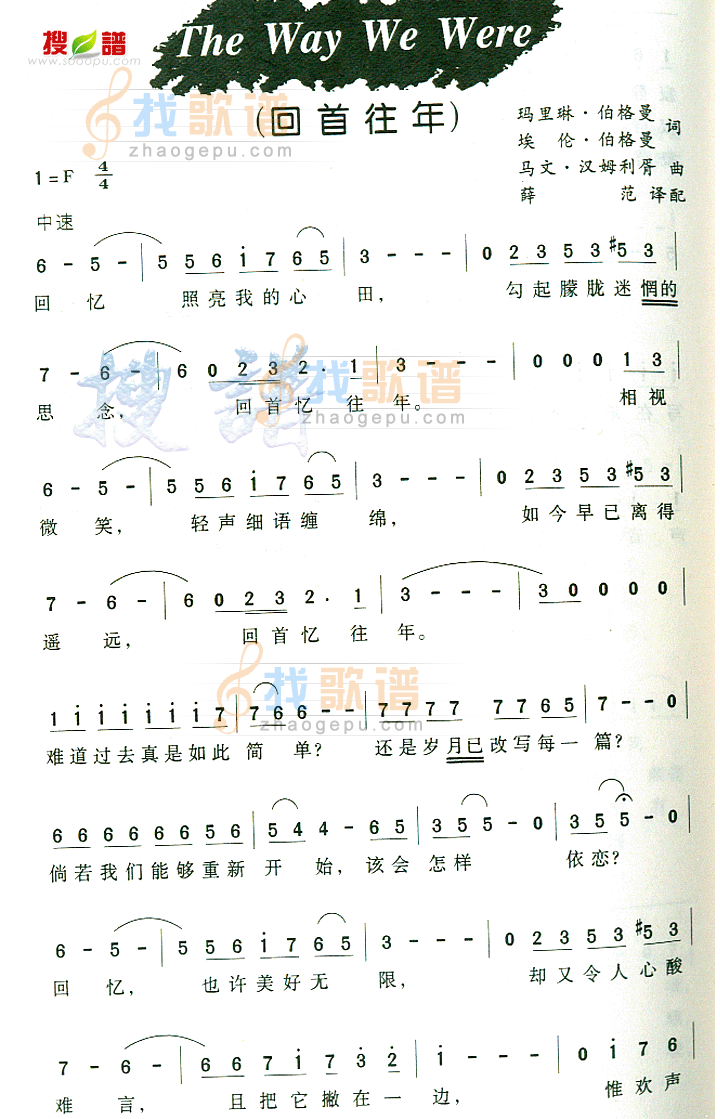 搜谱
www.sooopu.com
The Way We Were
(回首往年)
找歌谱
zhaogepu.com
玛里琳·伯格曼
埃 伦·伯格曼 词
马文·汉姆利胥 曲
薛 范 译配
1=F 4/4
中速
6 - 5 - | 5 5 6 i 7 6 5 | 3 - - - | 0 2 3 5 3 #5 3 |
回 忆 照亮我的心 田, 勾起朦胧迷惘的
7 - 6 - | 6 0 2 3 2· 1 | 3 - - - | 0 0 0 1 3 |
思 念, 回首忆 往 年。 相视
搜谱
找歌谱
zhaogepu.com
6 - 5 - | 5 5 6 i 7 6 5 | 3 - - - | 0 2 3 5 3 #5 3 |
微 笑, 轻声细语缠 绵, 如今早已离得
7 - 6 - | 6 0 2 3 2· 1 | 3 - - - | 3 0 0 0 0 |
遥 远, 回首忆 往 年。
找歌谱
zhaogepu.com
i i i i i i i 7 | 7 6 6 - | 7 7 7 7 7 7 6 5 | 7 - - 0 |
难道过去真是如此 简 单? 还是岁月已改写每一 篇?
6 6 6 6 6 6 5 6 | 5 4 4 - 6 5 | 3 5 5 - 0 | 3 5 5 - 0 |
倘若我们能够重新 开 始, 该会 怎样 依恋?
6 - 5 - | 5 5 6 i 7 6 5 | 3 - - - | 0 2 3 5 3 #5 3 |
回 忆, 也许美好无 限, 却又令人心酸
7 - 6 - | 6 6 7 i 7 3 2 | i - - - | 0 i 7 6 |
难 言, 且把它撇在一 边, 惟欢声